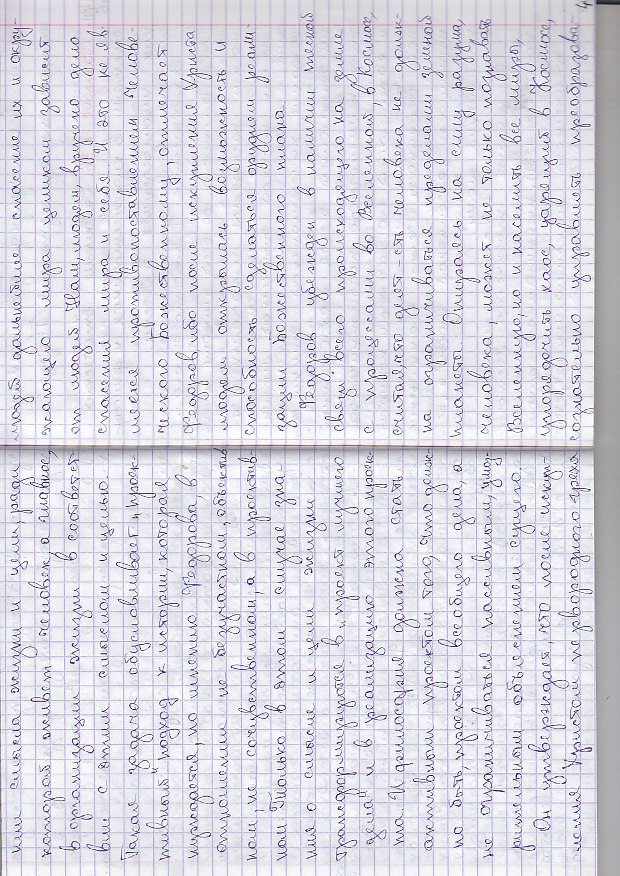 нии смысла жизни и цели, ради
которой живет человек, а главное,
в организации жизни в соответст
вии с этим смыслом и целью.
Такая задача обуславливает „проек-
тивный" подход к истории, которая
нуждается, по мнению Федорова, в
отношении не безучастном, объектив
ном, не сочувственном, а в проектив
ном. Только в этом случае зна-
ния о смысле и цели жизни
трансформируются в „проект лучшего
дела" и в реализацию этого проек-
та. И философия должна стать
активным проектом того, что долж-
но быть, проектом всеобщего дела, а
не ограничиваться пассивным, умо-
зрительным объяснением сущего.
Он утверждает, что после искуп-
ления Христом первородного греха
людей дальнейшее спасение их и окру-
жающего мира целиком зависит
от людей. Нам, людям, вручено дело
спасения мира и себя. И это не яв
ляется противопоставлением челове
ческого Божественному, отмечает
Федоров, ибо после искупления Христа
людям открылась возможность и
способность сделаться орудием реали-
зации Божественного плана.
Федоров убежден в наличии тесной
связи всего происходящего на земле
с процессами во Вселенной, в Космосе,
считая, что деят-сть человека не долж-
на ограничиваться пределами земной
планеты. Опираясь на силу разума,
человека, может не только познавать
Вселенную, но и населить все миры,
упорядочить хаос, царящий в Космосе,
сознательно управлять преобразова-